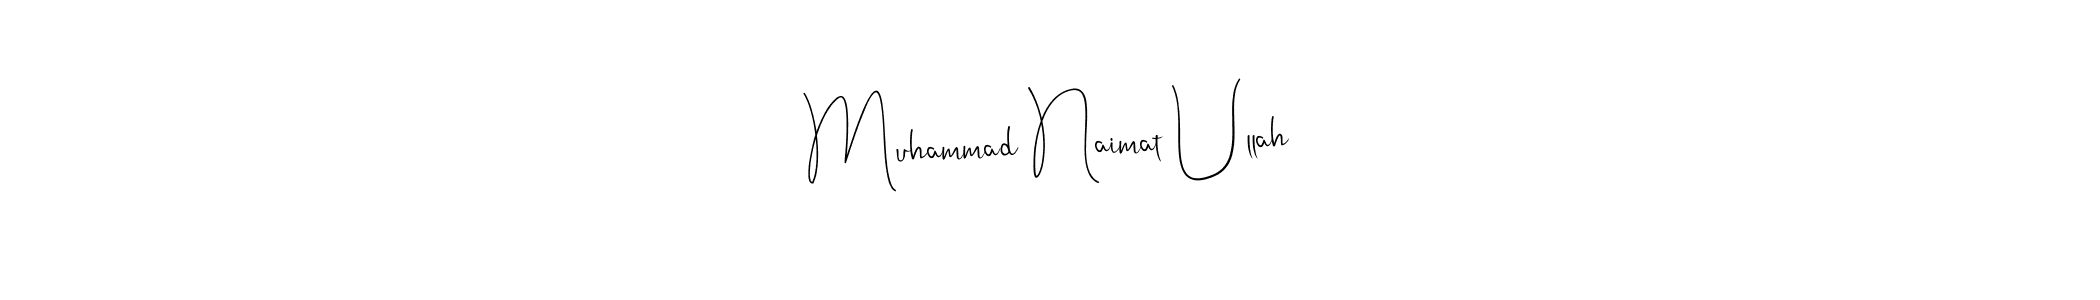 Muhammad Naimat Ullah